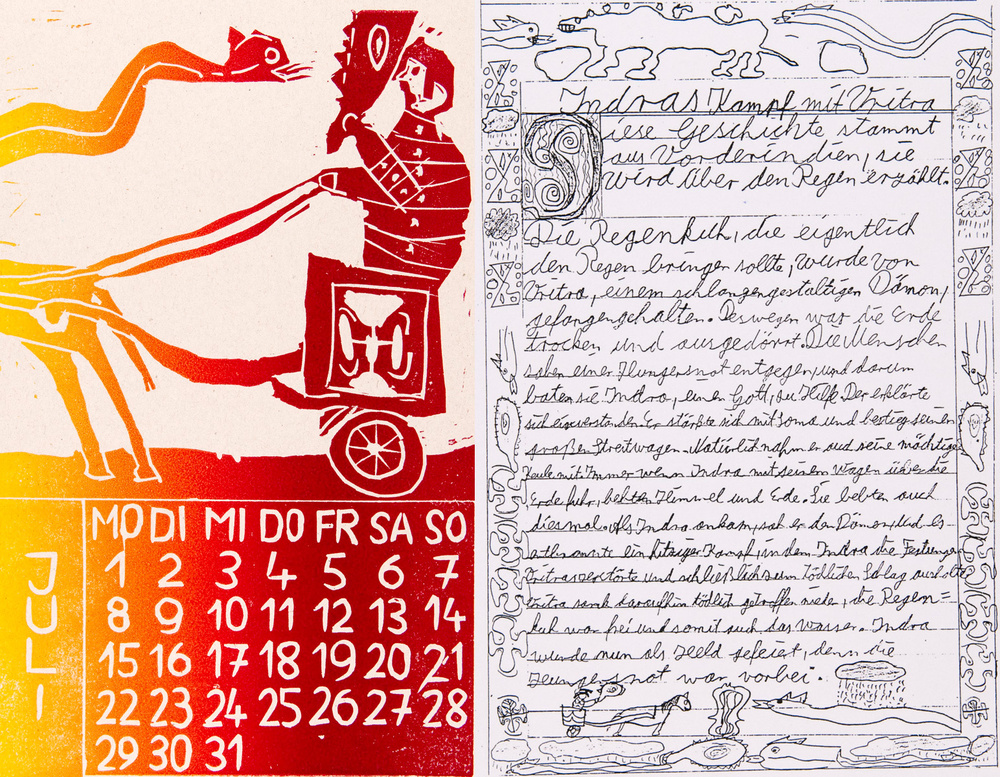 MO DI MI DO FR SA SO
JULI
1 2 3 4 5 6 7
8 9 10 11 12 13 14
15 16 17 18 19 20 21
22 23 24 25 26 27 28
29 30 31
Indras Kampf mit Vritra
Diese Geschichte stammt
aus Vorderindien, sie
wird über den Regen erzählt.
Die Regenkuh, die eigentlich
den Regen bringen sollte, wurde von
Vritra, einem schlangengestaltigen Dämon,
gefangengehalten. Deswegen war die Erde
trocken und ausgedörrt. Die Menschen
sahen einer Hungersnot entgegen, und darum
baten sie Indra, einen Gott, zu Hilfe. Der erklärte
sich einverstanden. Er stärkte sich mit Soma und bestieg seinen
großen Streitwagen. Natürlich nahm er auch seine mächtige
Keule mit. Immer wenn Indra mit seinem Wagen über die
Erde fuhr, bebten Himmel und Erde. Sie bebten auch
diesmal. Als Indra ankam, sah er den Dämon, und es
entbrannte ein hitziger Kampf, in dem Indra die Festungen
Vritras zerstörte und schließlich zum tödlichen Schlag ausholte
Vritra sank daraufhin tödlich getroffen nieder, die Regen=
kuh war frei und somit auch das Wasser. Indra
wurde nun als Held gefeiert, denn die
Hungersnot war vorbei.